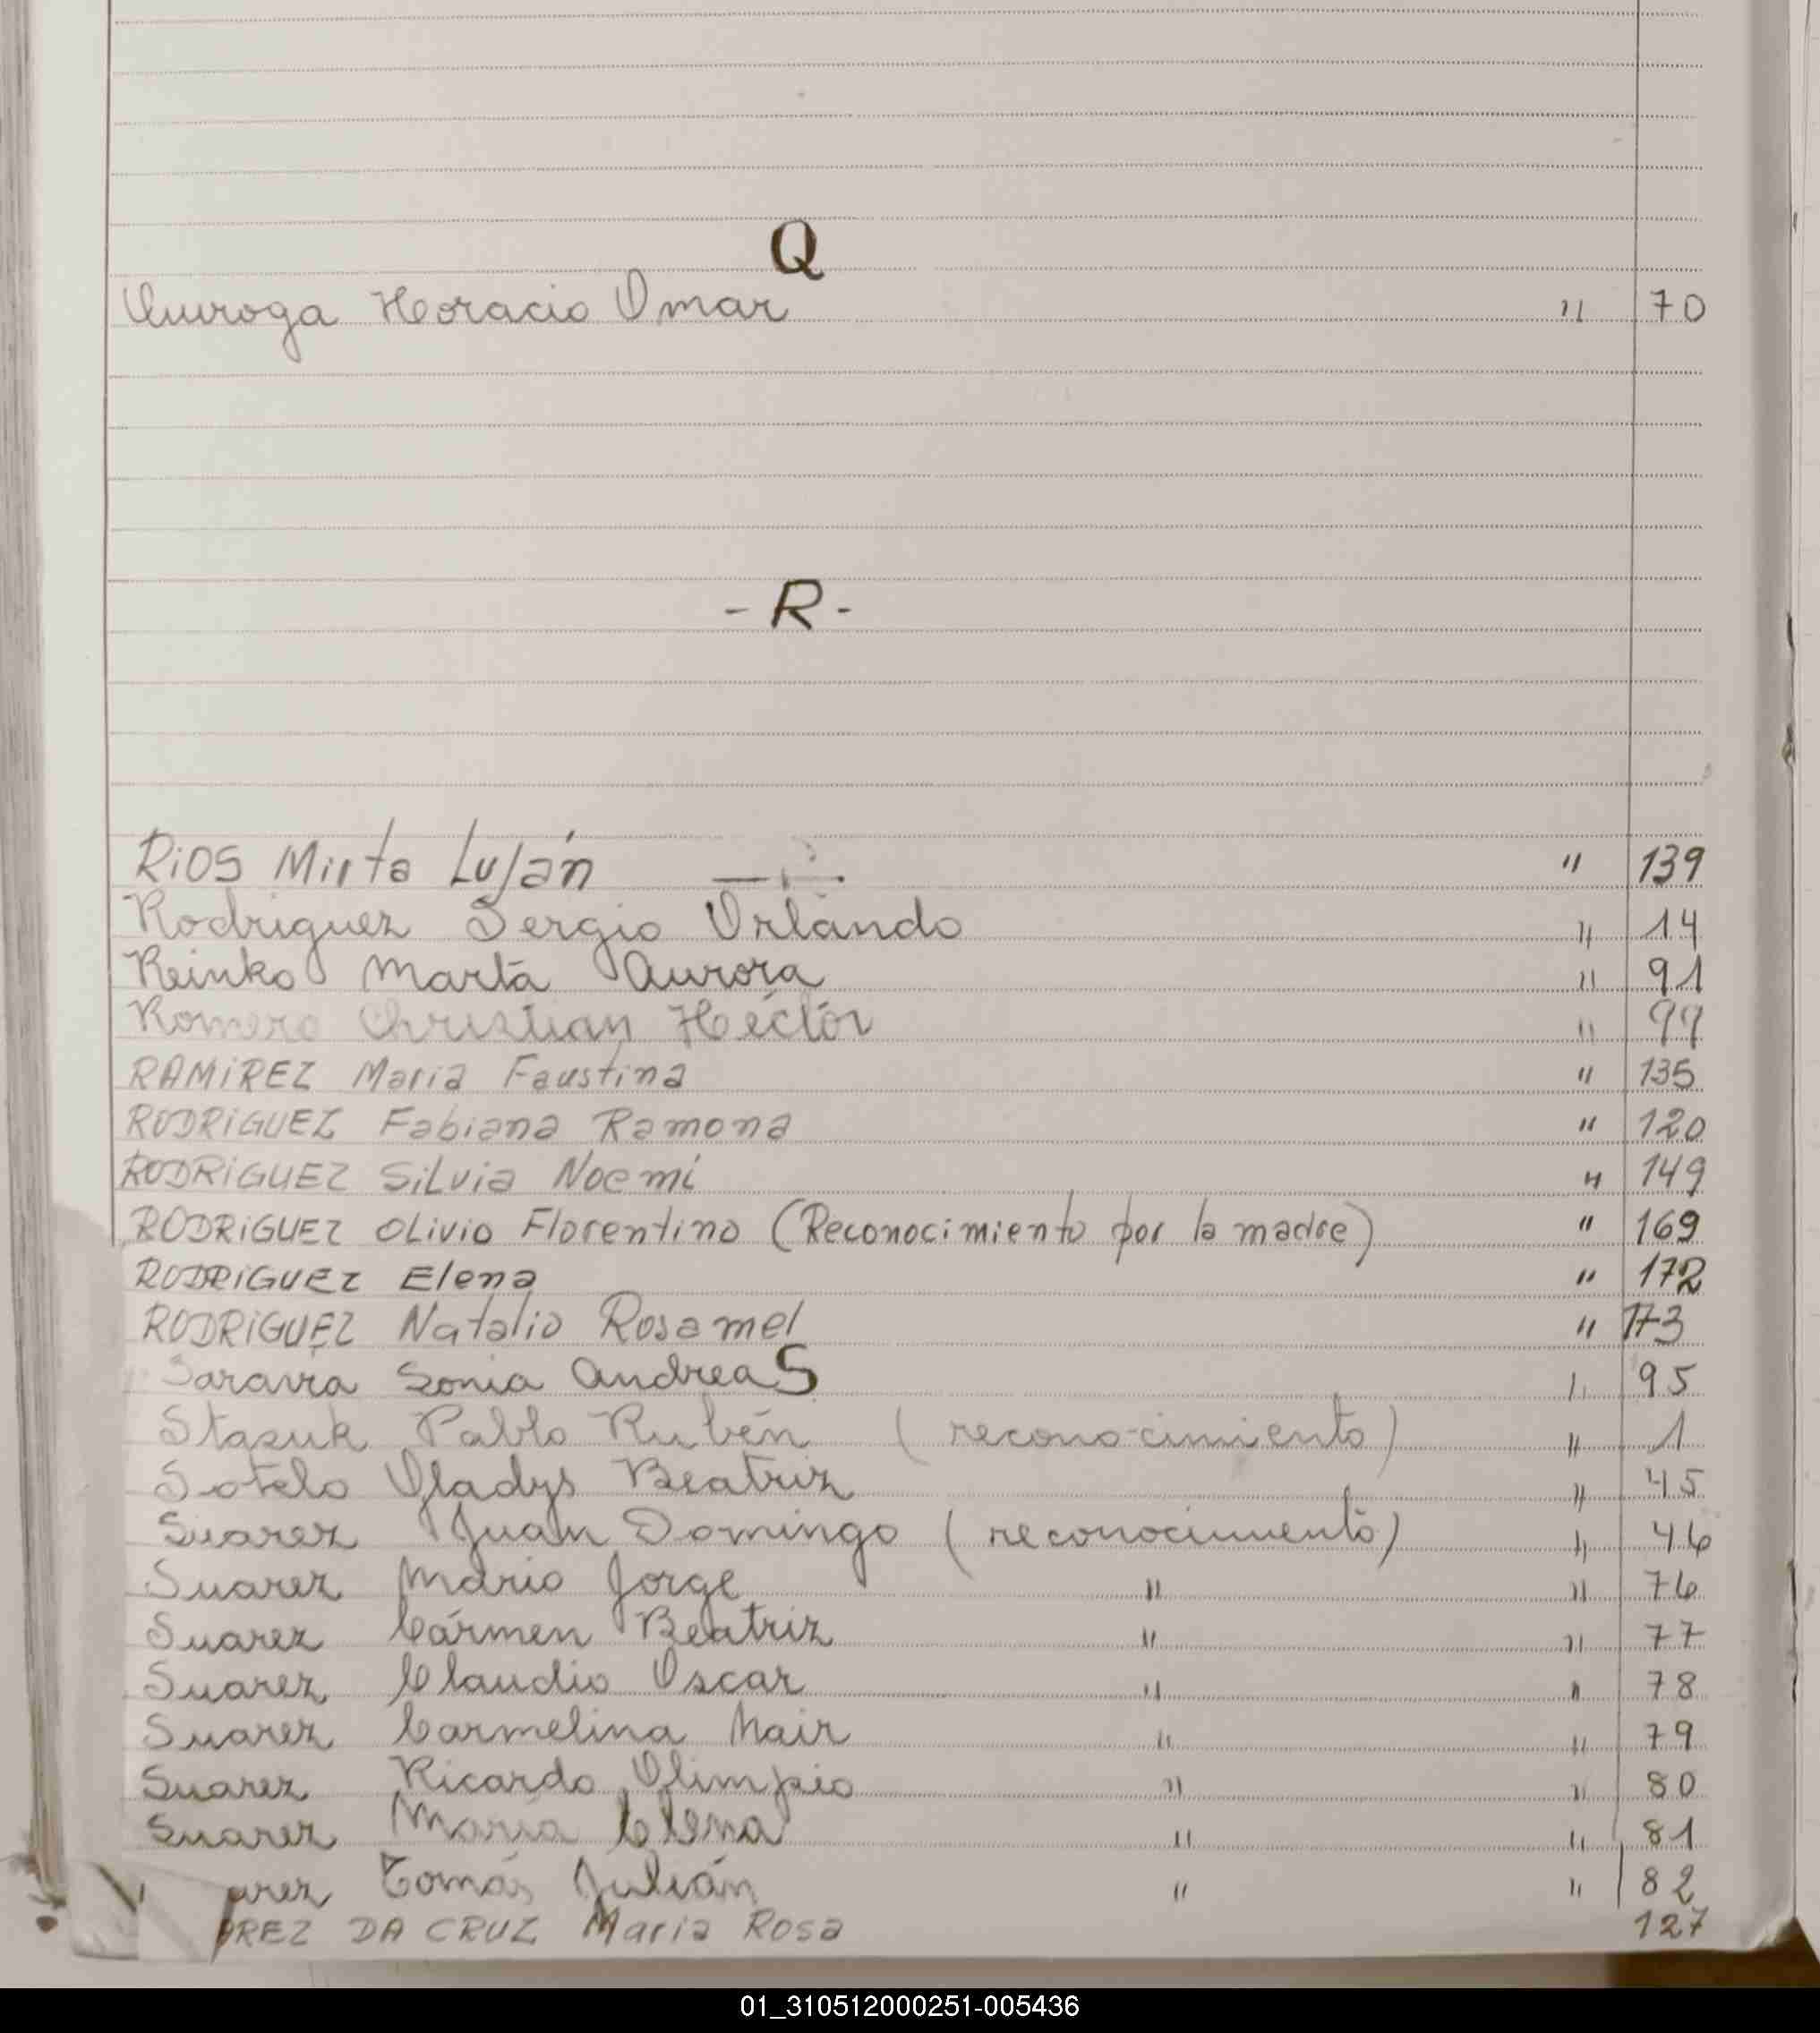 Q
Quiroga Horacio Omar " 70
- R -
RiOS Mirta Luján " 139
Rodriguez Sergio Orlando " 14
Reinko Marta Aurora " 91
Romero Christian Héctor " 99
RAMiREZ Maria Faustina " 135
RODRiGUEZ Fabiana Ramona " 120
RODRiGUEZ SiLvia Noemí " 149
RODRiGUEZ OLivio Florentino (Reconocimiento por la madre) " 169
RODRiGUEZ Elena " 172
RODRiGUEZ Natalio Rosamel " 173
Saravia Sonia Andrea S " 95
Stasuk Pablo Rubén (recono-cimiento) " 1
Sotelo Gladys Beatriz " 45
Suarez Juan Domingo (reconocimiento) " 46
Suarez Mario Jorge " " 76
Suarez Cármen Beatriz " " 77
Suarez Claudio Oscar " " 78
Suarez Carmelina Nair " " 79
Suarez Ricardo Olimpio " " 80
Suarez María Elena " " 81
arez Tomás Julián " " 82
AREZ DA CRUZ Maria Rosa 127
01_310512000251-005436